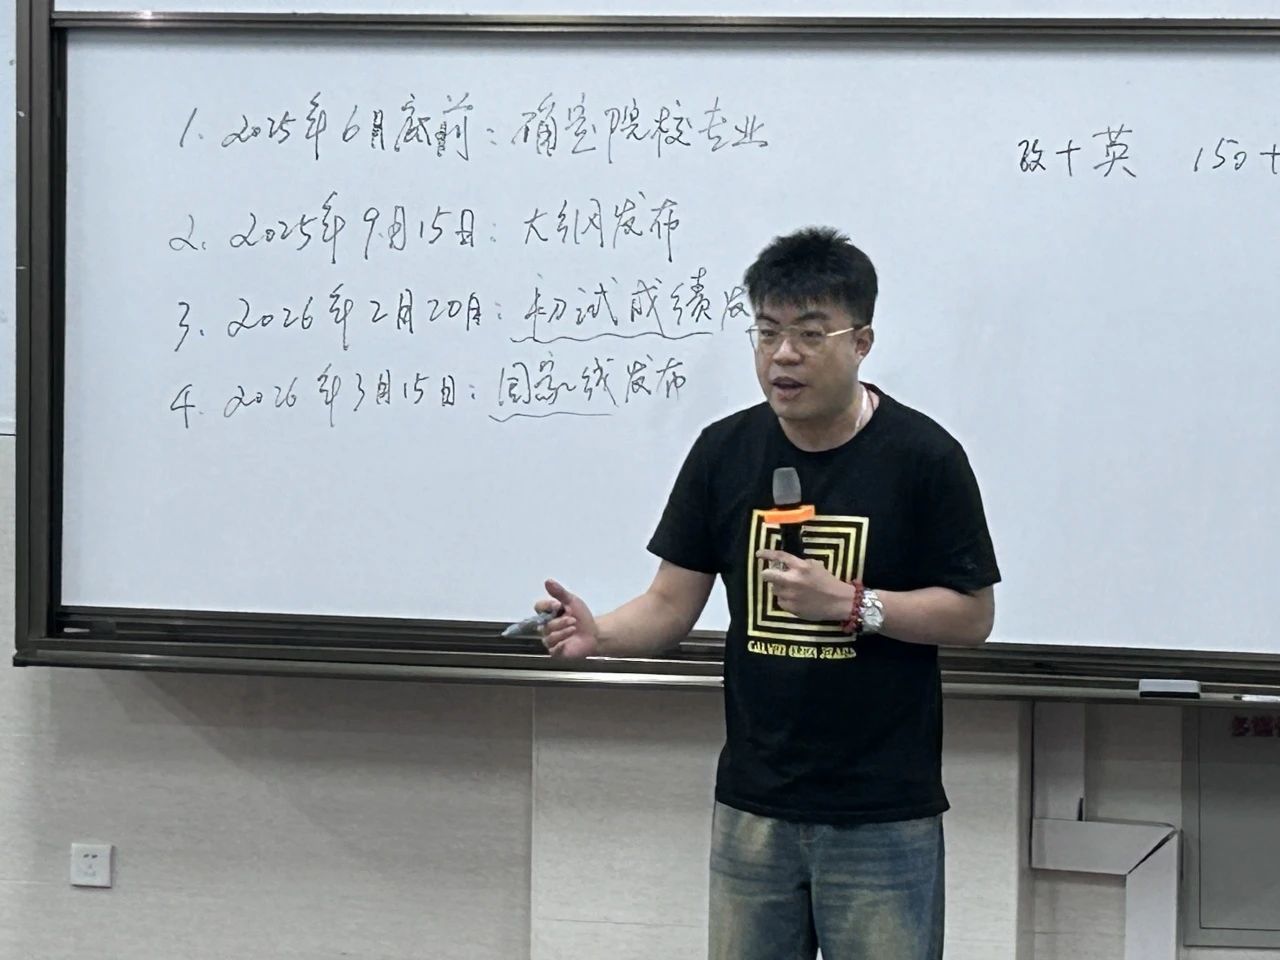 1. 2025年6月底前：确定院校专业
2. 2025年9月15日：大纲发布
3. 2026年2月20日：初试成绩发
4. 2026年3月15日：国家线发布
政+英 150+
CALVIN KLEIN JEANS
多媒